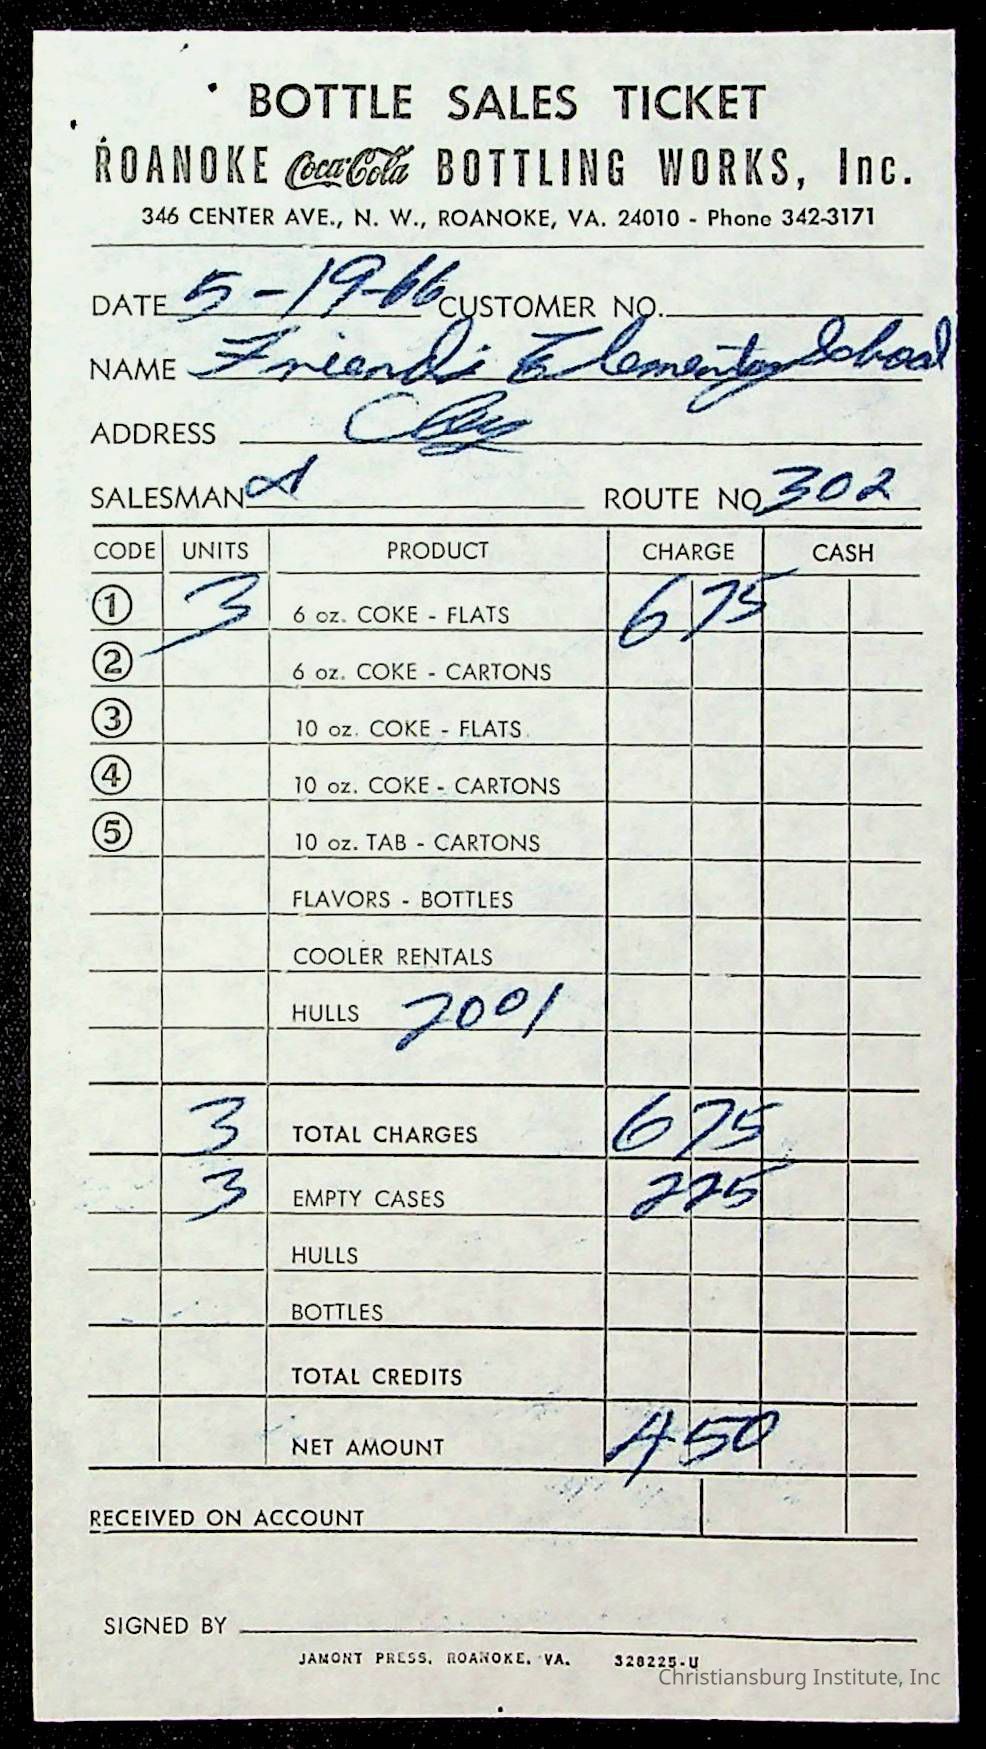 BOTTLE SALES TICKET
ROANOKE Coca-Cola BOTTLING WORKS, Inc.
346 CENTER AVE., N. W., ROANOKE, VA. 24010 - Phone 342-3171
DATE 5-19-66 CUSTOMER NO.
NAME Friends Elementary School
ADDRESS
SALESMAN ROUTE NO 302
CODE UNITS PRODUCT CHARGE CASH
1 3 6 oz. COKE - FLATS 6 75
2 6 oz. COKE - CARTONS
3 10 oz. COKE - FLATS
4 10 oz. COKE - CARTONS
5 10 oz. TAB - CARTONS
FLAVORS - BOTTLES
COOLER RENTALS
HULLS 2001
3 TOTAL CHARGES 6 75
3 EMPTY CASES 2 25
HULLS
BOTTLES
TOTAL CREDITS
NET AMOUNT 4 50
RECEIVED ON ACCOUNT
SIGNED BY
JAMONT PRESS, ROANOKE, VA. 328225-U
Christiansburg Institute, Inc